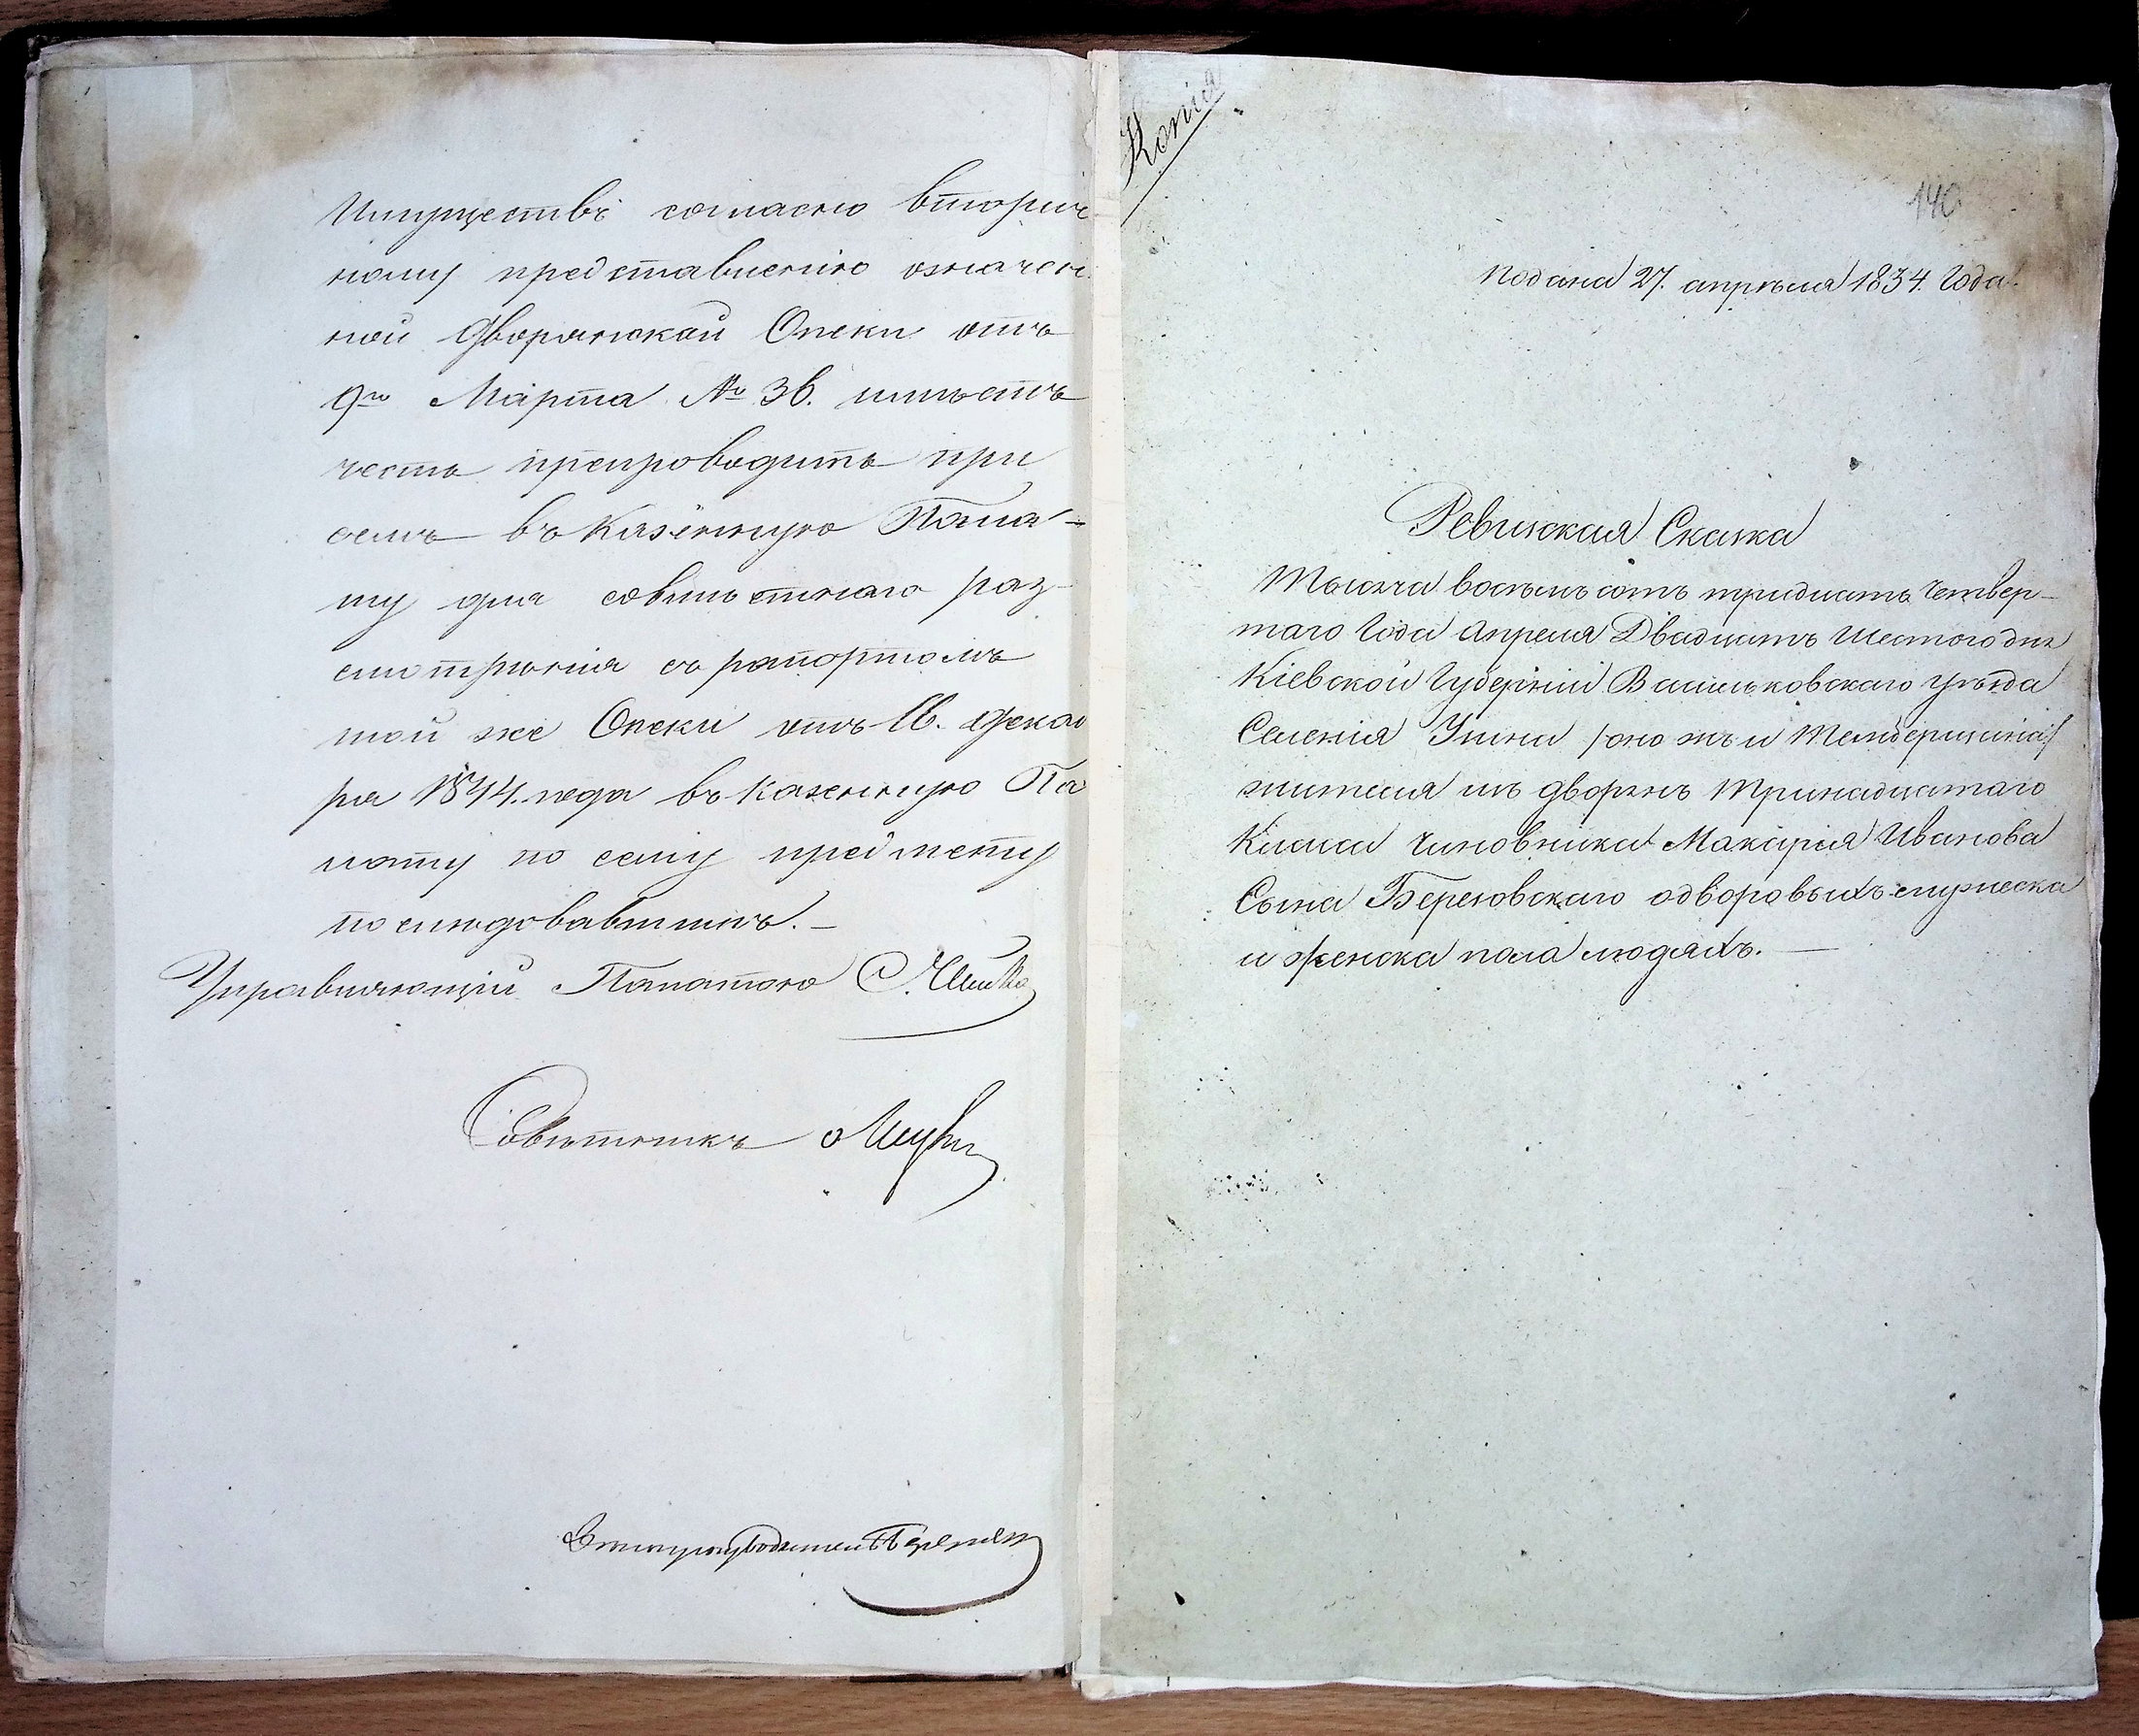 Имуществъ согласно вторич
ному представленію означен
ной Дворянской Опеки отъ
9го Марта № 36. имѣетъ
честь препроводить при
семъ въ Казенную Пала-
ту для совмѣстнаго раз-
смотрѣнія съ рапортомъ
той же Опеки отъ 16. Декаб
ря 1844. года въ Казенную Па
лату по сему предмету
послѣдовавшимъ. —
Управляющій Палатою
Совѣтникъ
Копія
140
Подана 27. апрѣля 1834. Года.
Ревизская Сказка
Тысяча восѣмъ сотъ тридцать Четвер-
таго Года Апреля Двадцать Шестого дня
Кіевской Губерніи Васильковскаго уѣзда
Селенія
жителя изъ дворянъ Тринадцатаго
Класса Чиновника Макарія Иванова
Сына Березовскаго одворовыхъ мужеска
и женска пола людяхъ. —